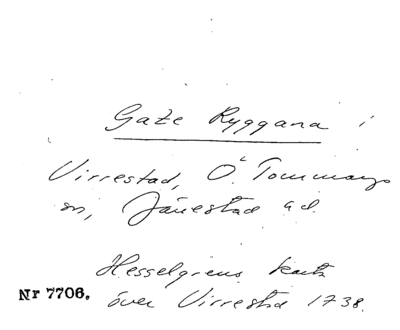 Gaze Ryggana i
Virrestad, Ö. Tommarps
sn, Järrestad ad.
Hesselgrens karta
Nr 7706. över Virrestad 1738.